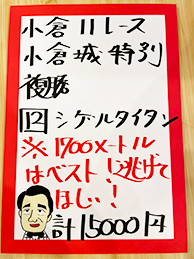 小倉11レース
小倉城特別
複勝
12 シゲルタイタン
※1700メートル
はベスト!逃げて
ほしい!
計15000円